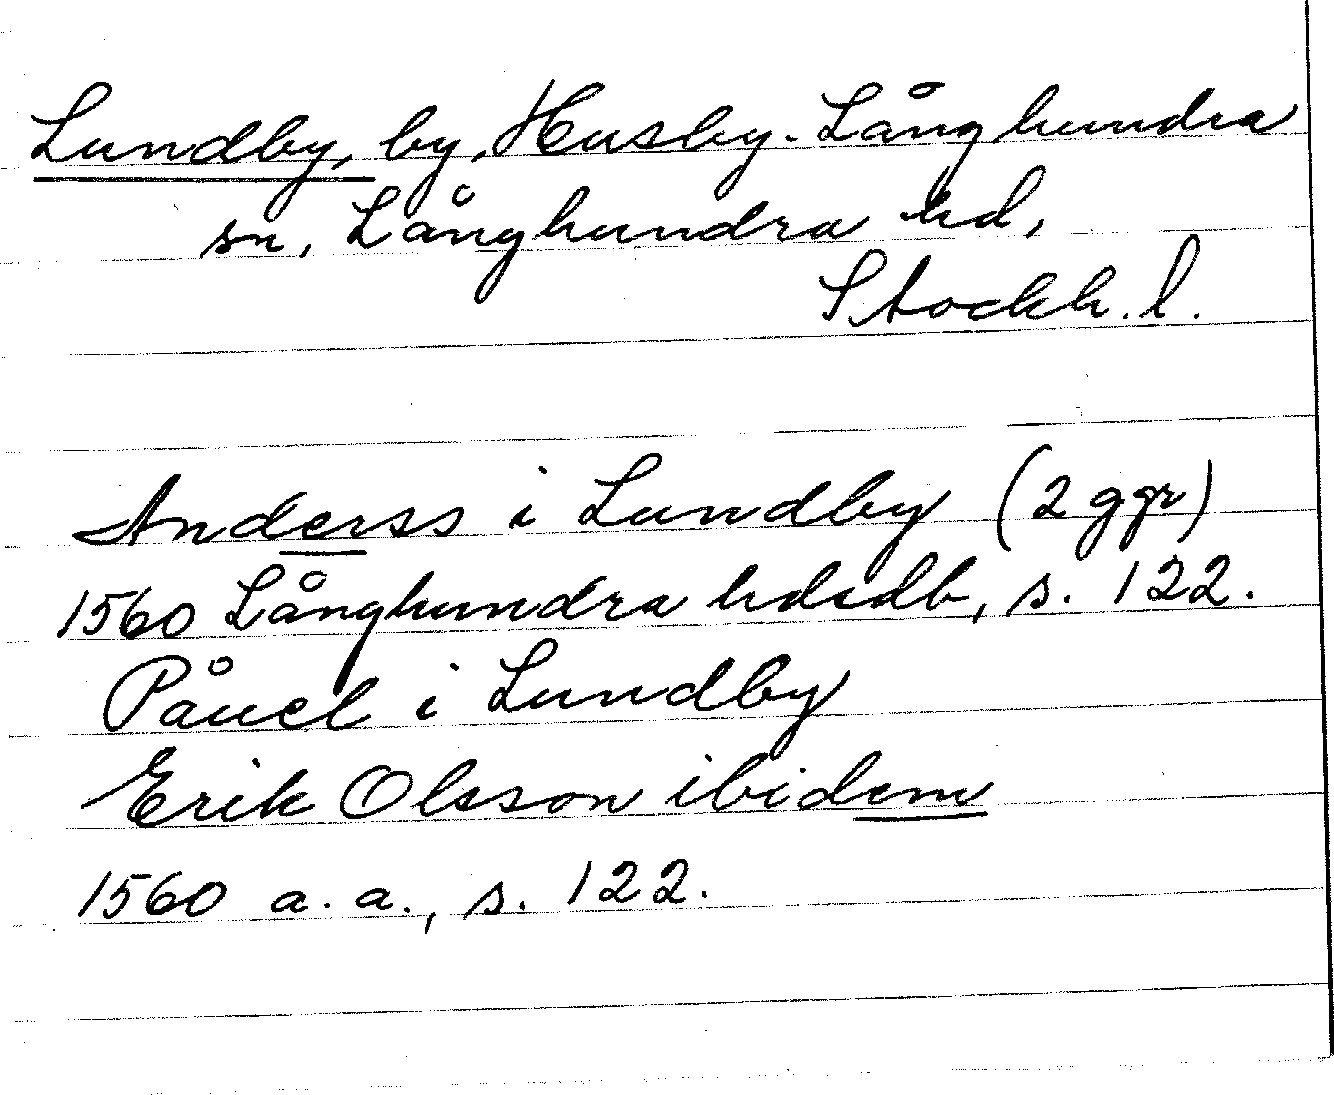 Lundby, by, Husby-Långhundra
sn, Långhundra hd,
Stockh. l.
Anderss i Lundby (2 ggr)
1560 Långhundra hdsdb, s. 122.
Påuel i Lundby
Erik Olsson ibidem
1560 a. a., s. 122.